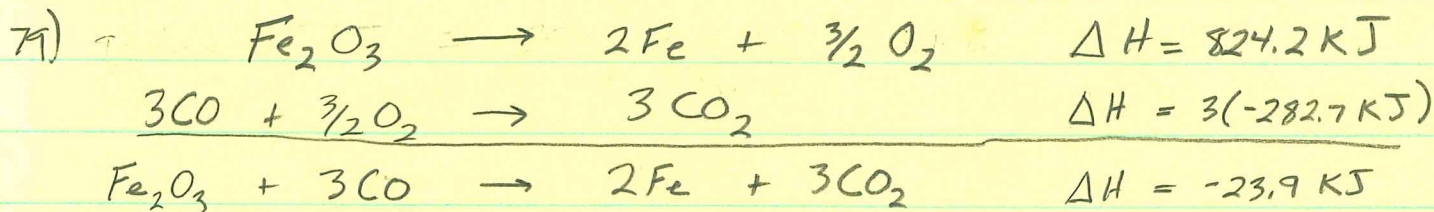 79) Fe₂O₃ → 2Fe + 3/2 O₂ ΔH = 824.2 KJ
3CO + 3/2 O₂ → 3CO₂ ΔH = 3(-282.7 KJ)
Fe₂O₃ + 3CO → 2Fe + 3CO₂ ΔH = -23.9 KJ